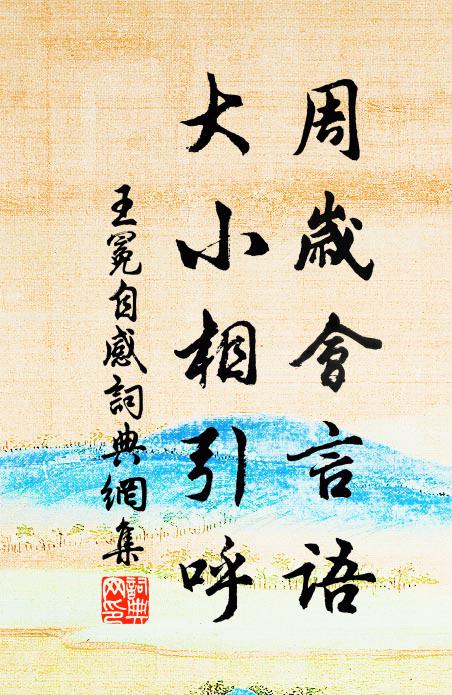 周歲會言語
大小相引呼
王冕自感詞典網集
詞典
网印